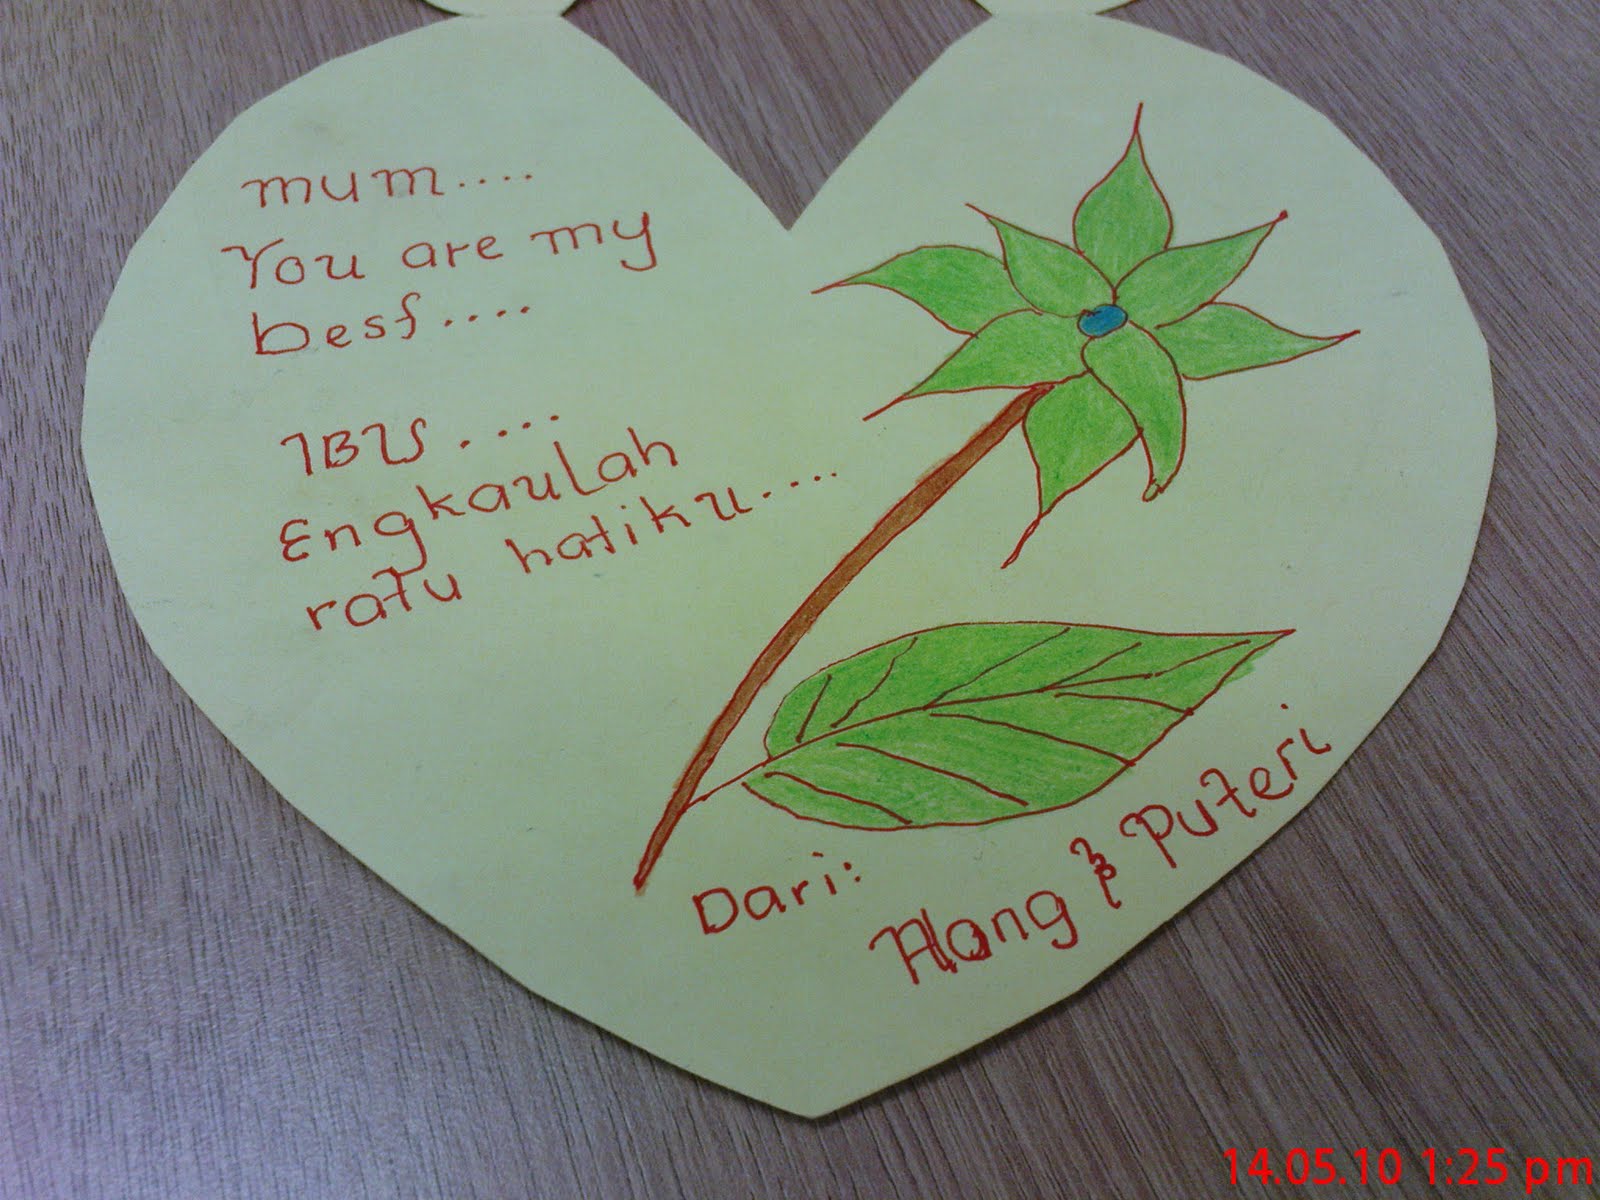 mum....
You are my
best....
IBU....
Engkaulah
ratu hatiku....
Dari:
Along & Puteri
14.05.10 1:25 pm